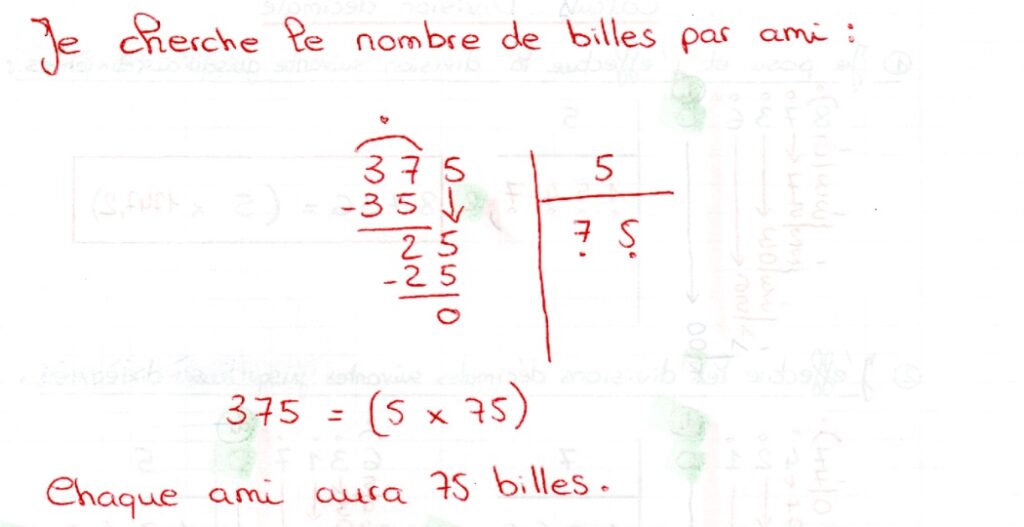 Je cherche le nombre de billes par ami :
375 | 5
-35 | 75
25
-25
0
375 = (5 x 75)
Chaque ami aura 75 billes.